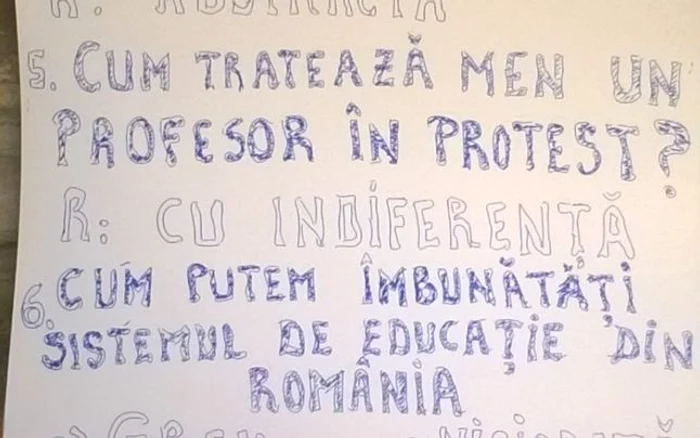 R: ABSTRACTĂ
5. CUM TRATEAZĂ MEN UN
PROFESOR ÎN PROTEST?
R: CU INDIFERENȚĂ
6. CUM PUTEM ÎMBUNĂTĂȚI
SISTEMUL DE EDUCAȚIE DIN
ROMÂNIA